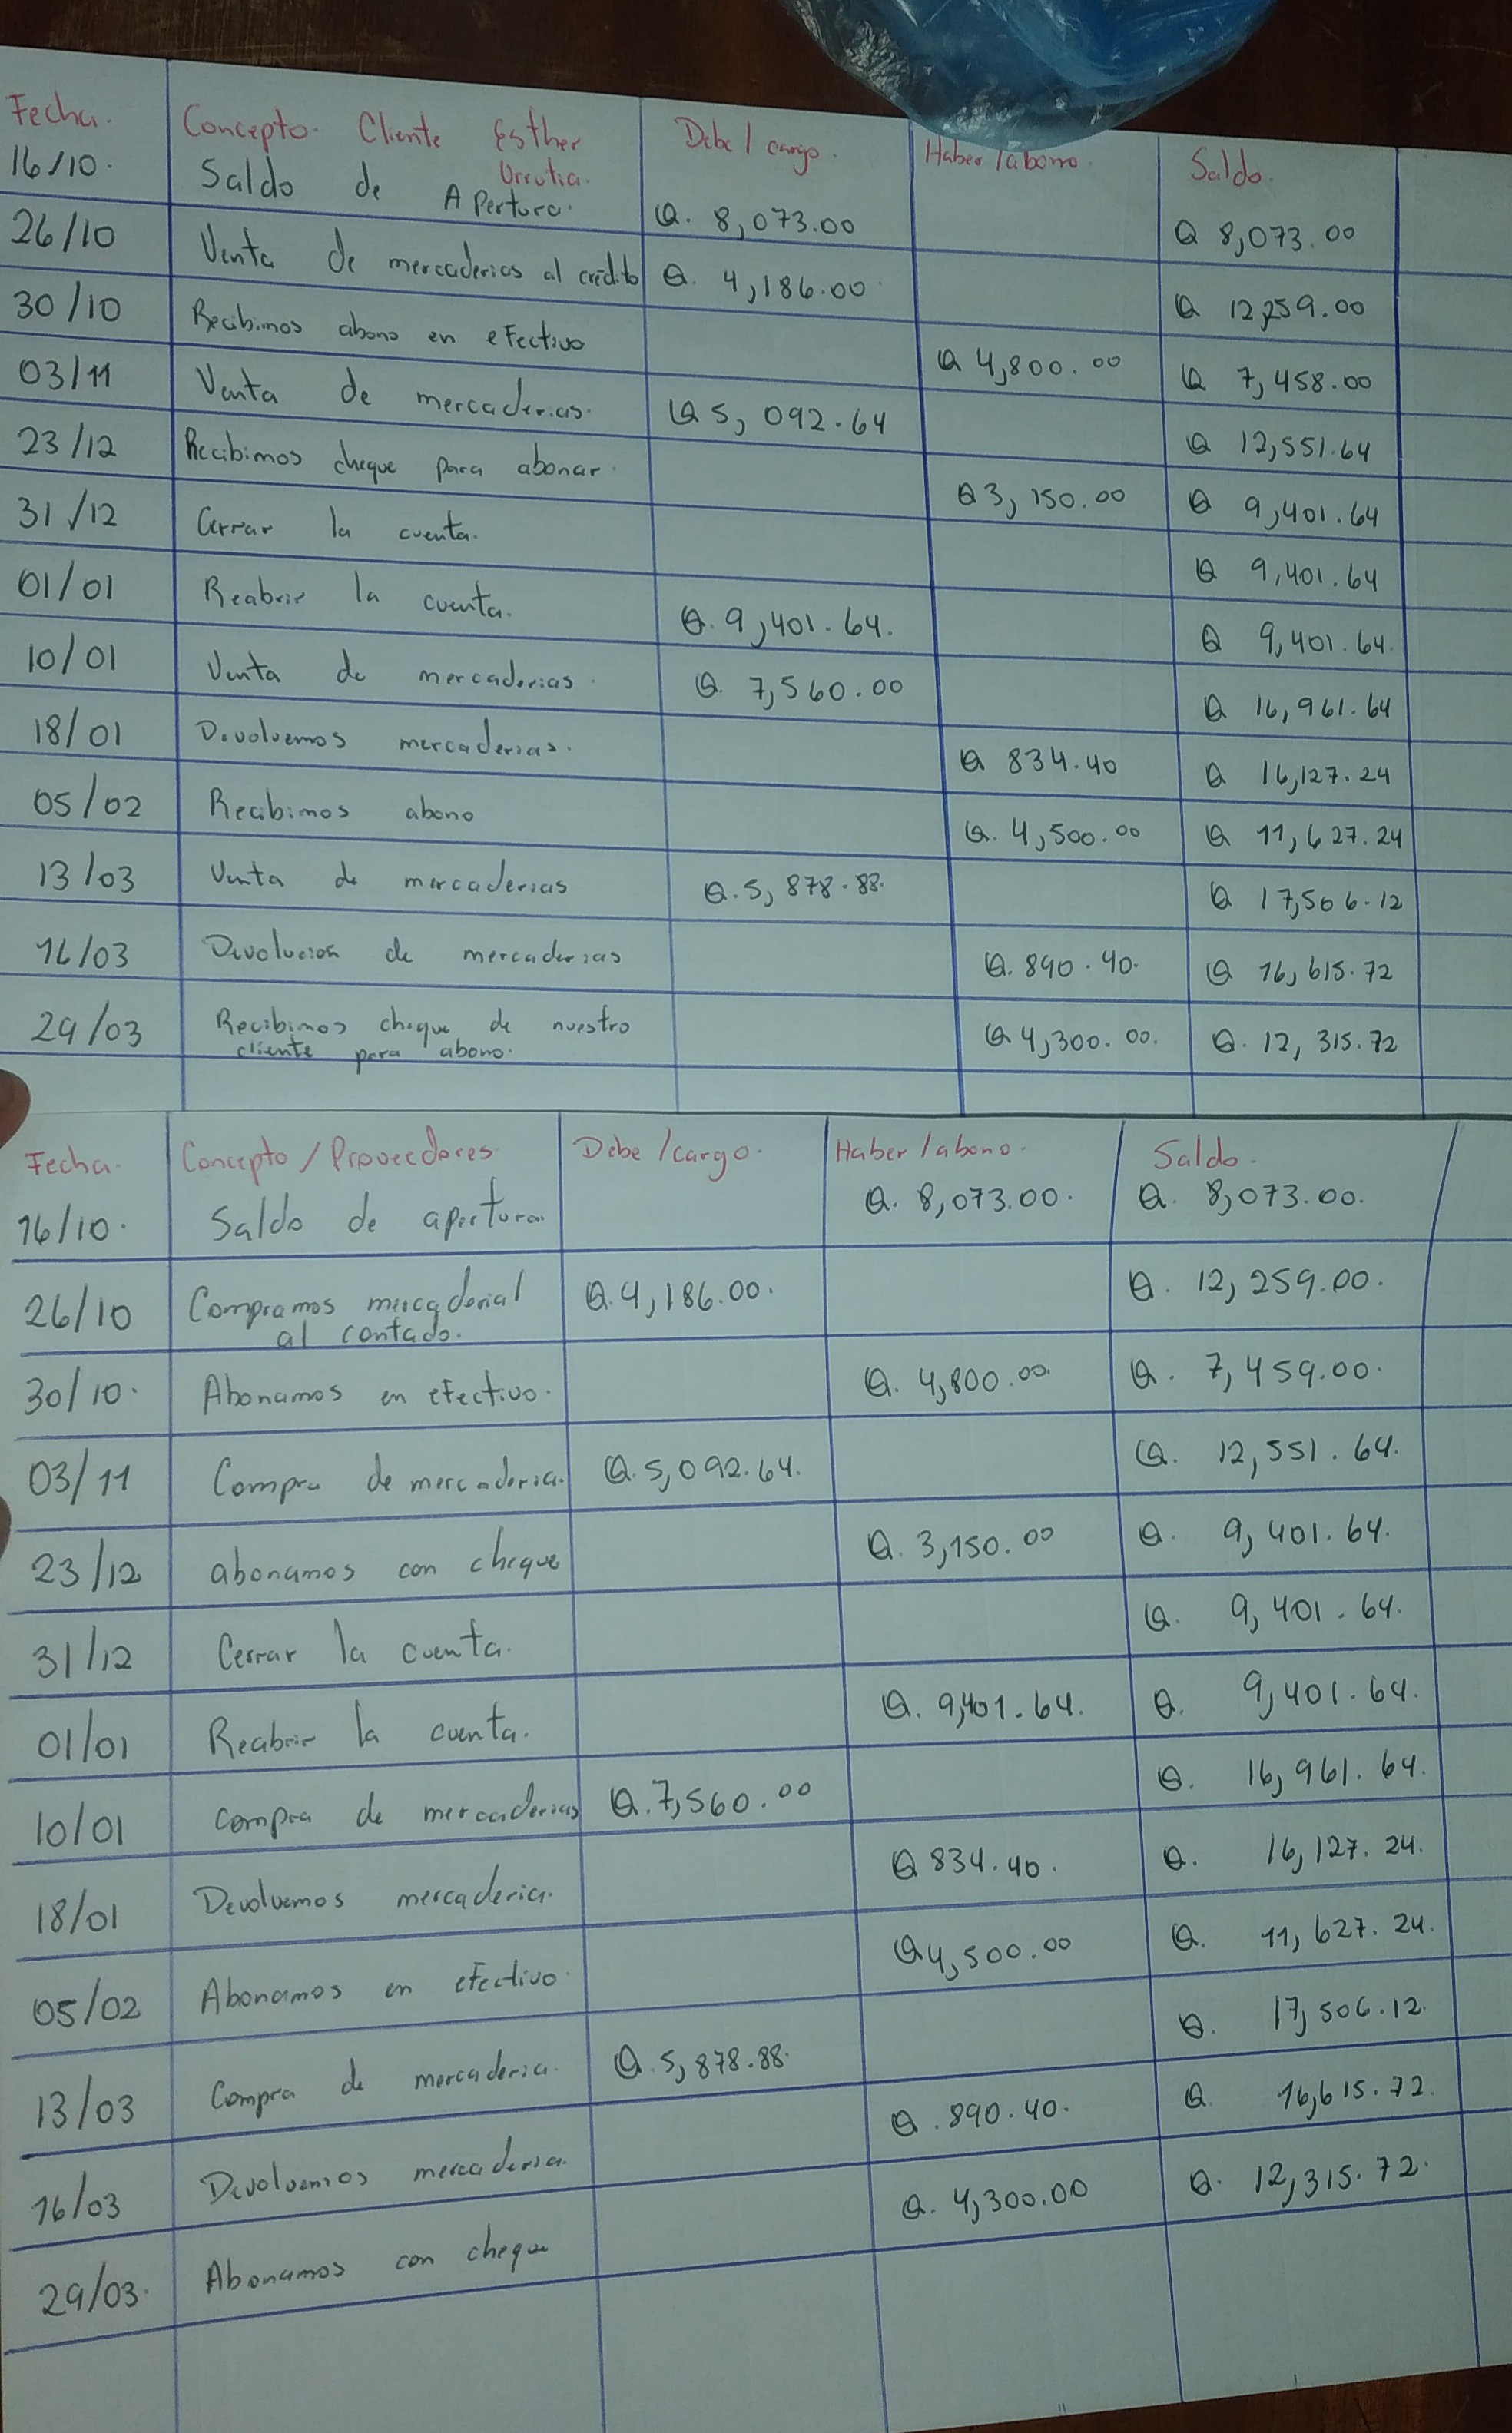 Fecha. Concepto. Cliente Esther Urrutia. Debe / cargo. Haber / abono. Saldo.
16/10. Saldo de Apertura. Q. 8,073.00 Q 8,073.00
26/10 Venta de mercaderias al crédito Q. 4,186.00 Q 12,259.00
30/10 Recibimos abono en efectivo Q 4,800.00 Q 7,458.00
03/11 Venta de mercaderias. Q 5,092.64 Q 12,551.64
23/12 Recibimos cheque para abonar. Q 3,150.00 Q 9,401.64
31/12 Cerrar la cuenta. Q 9,401.64
01/01 Reabrir la cuenta. Q. 9,401.64. Q 9,401.64.
10/01 Venta de mercaderias. Q. 7,560.00 Q 16,961.64
18/01 Devolvemos mercaderias. Q 834.40 Q 16,127.24
05/02 Recibimos abono Q. 4,500.00 Q 11,627.24
13/03 Venta de mercaderias Q. 5,878.88. Q 17,506.12
16/03 Devolucion de mercaderias Q. 890.40. Q 16,615.72
29/03 Recibimos cheque de nuestro Q 4,300.00. Q. 12,315.72
cliente para abono.
Fecha. Concepto / Proveedores. Debe / cargo. Haber / abono. Saldo.
16/10. Saldo de apertura. Q. 8,073.00. Q. 8,073.00.
26/10 Compramos mercaderial Q. 4,186.00. Q. 12,259.00.
al contado.
30/10. Abonamos en efectivo. Q. 4,800.00. Q. 7,459.00.
03/11 Compra de mercaderia. Q. 5,092.64. Q. 12,551.64.
23/12 abonamos con cheque Q. 3,150.00 Q. 9,401.64.
31/12 Cerrar la cuenta. Q. 9,401.64.
01/01 Reabrir la cuenta. Q. 9,401.64. Q. 9,401.64.
10/01 compra de mercaderias Q. 7,560.00 Q. 16,961.64.
18/01 Devolvemos mercaderia. Q 834.40. Q. 16,127.24.
05/02 Abonamos en efectivo. Q 4,500.00 Q. 11,627.24.
13/03 Compra de mercaderia. Q. 5,878.88. Q. 17,506.12.
16/03 Devolvemos mercaderia. Q. 890.40. Q. 16,615.72.
29/03. Abonamos con cheque Q. 4,300.00 Q. 12,315.72.